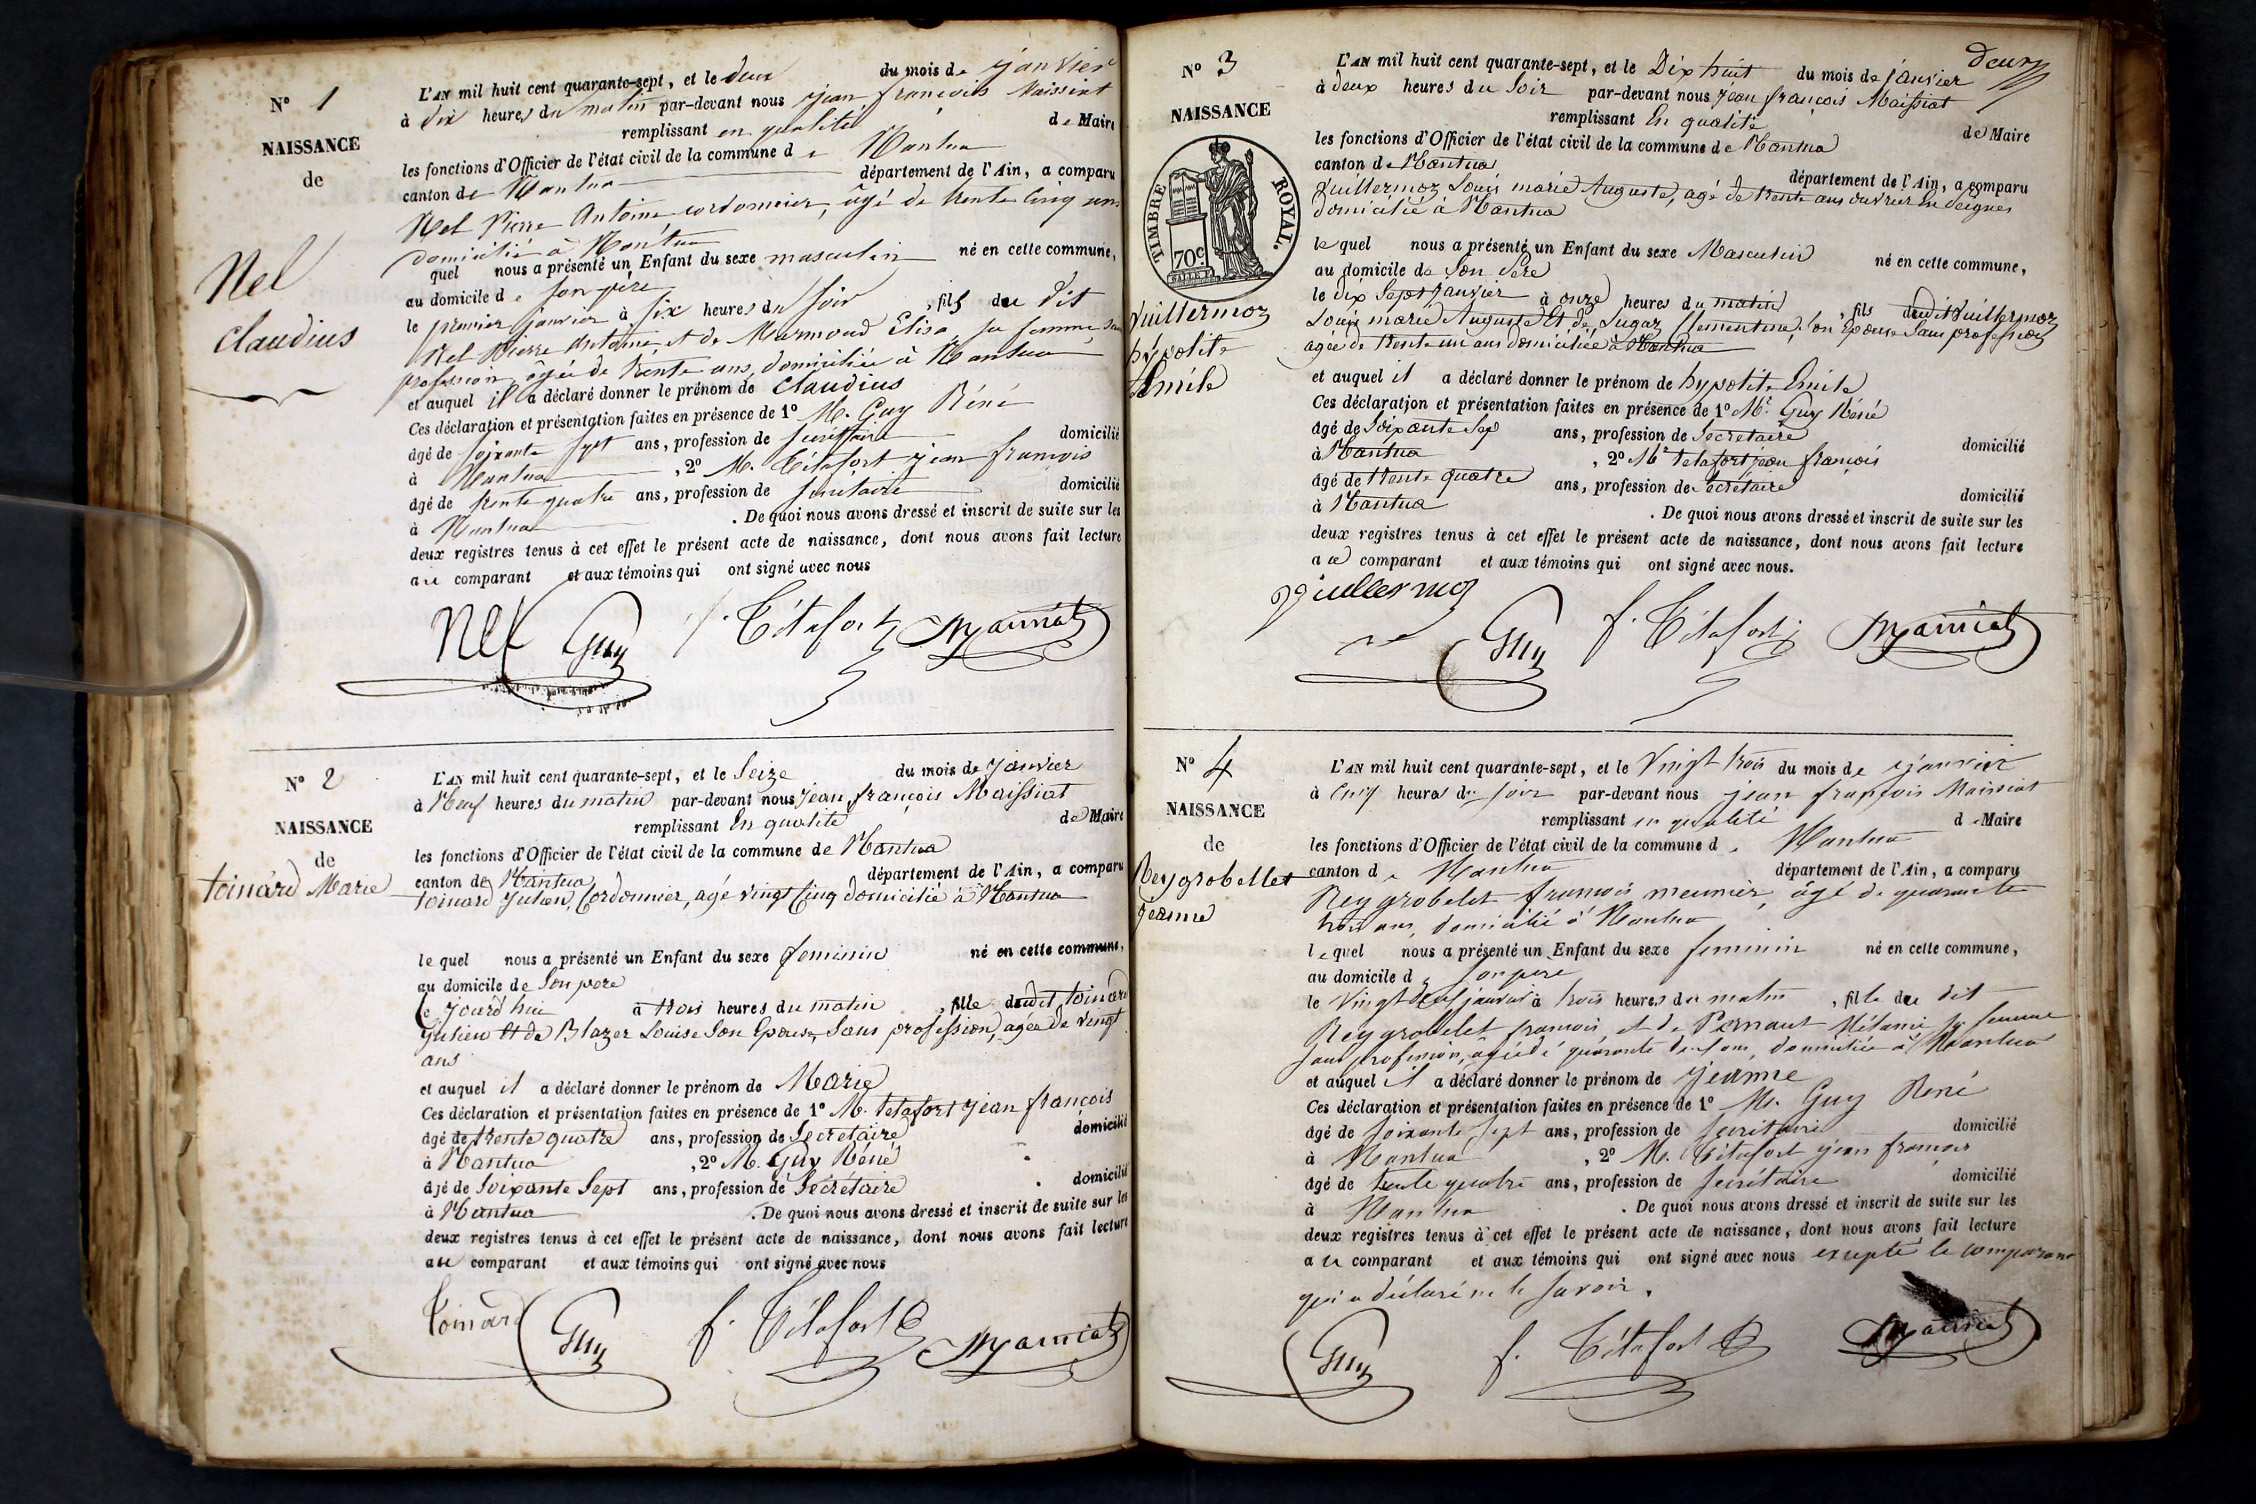 N° 1
NAISSANCE
de
Nel
Claudius
L'AN mil huit cent quarante-sept, et le deux du mois de janvier
à dix heures du matin par-devant nous jean françois Maissiat
remplissant en qualité de Maire
les fonctions d'Officier de l'état civil de la commune de Nantua
canton de Nantua département de l'Ain, a comparu
Nel Pierre Antoine cordonnier, âgé de trente cinq ans
domicilié à Nantua
quel nous a présenté un Enfant du sexe masculin né en cette commune,
au domicile de son père
le premier janvier à six heures du soir, fils du dit
Nel Pierre Antoine et de Marmoud Elisa sa femme sans
profession, âgée de trente ans, domiciliée à Nantua
et auquel il a déclaré donner le prénom de Claudius
Ces déclaration et présentation faites en présence de 1° M. Guy Réné
âgé de soixante sept ans, profession de secrétaire domicilié
à Nantua, 2° M. Tétafort jean françois
âgé de trente quatre ans, profession de secrétaire domicilié
à Nantua. De quoi nous avons dressé et inscrit de suite sur les
deux registres tenus à cet effet le présent acte de naissance, dont nous avons fait lecture
au comparant et aux témoins qui ont signé avec nous
Nel Guy f. Tétafort
N° 2
NAISSANCE
de
toinard Marie
L'AN mil huit cent quarante-sept, et le Seize du mois de janvier
à Neuf heures du matin par-devant nous jean françois Maissiat
remplissant En qualité de Maire
les fonctions d'Officier de l'état civil de la commune de Nantua
canton de Nantua département de l'Ain, a comparu
toinard Julien, Cordonnier, agé vingt Cinq domicilié à Nantua
le quel nous a présenté un Enfant du sexe feminin né en cette commune,
au domicile de Son pere
le jourd'hui à trois heures du matin, fille dudit toinard
Julien Et de Blazer Louise Son Epouse, Sans profession, agée de vingt
ans
et auquel il a déclaré donner le prénom de Marie
Ces déclaration et présentation faites en présence de 1° M. tetafort jean françois
âgé de trente quatre ans, profession de Secretaire domicilié
à Nantua, 2° M. Guy Réné
âgé de Soixante Sept ans, profession de Secrétaire domicilié
à Nantua. De quoi nous avons dressé et inscrit de suite sur les
deux registres tenus à cet effet le présent acte de naissance, dont nous avons fait lecture
au comparant et aux témoins qui ont signé avec nous
toinard Guy f. Tétafort
deux
N° 3
NAISSANCE
TIMBRE ROYAL.
70c
Vuillermoz
hypolite
Emile
L'AN mil huit cent quarante-sept, et le Dix huit du mois de janvier
à deux heures du Soir par-devant nous jean françois Maissiat
remplissant En qualité de Maire
les fonctions d'Officier de l'état civil de la commune de Nantua
canton de Nantua département de l'Ain, a comparu
Vuillermoz Louis marie Auguste, agé de trente ans ouvrier En peignes
domicilié à Nantua
le quel nous a présenté un Enfant du sexe Masculin né en cette commune,
au domicile de Son Pere
le dix Sept Janvier à onze heures du matin, fils dudit Vuillermoz
Louis marie Auguste Et de Sugaz Clementine, son Epouse Sans profession
agée de trente un ans domiciliée à Nantua
et auquel il a déclaré donner le prénom de hypolite Emile
Ces déclaration et présentation faites en présence de 1° Mr. Guy Réné
âgé de Soixante Sept ans, profession de Secretaire domicilié
à Nantua, 2° Mr tetafort jean françois
âgé de trente quatre ans, profession de Secrétaire domicilié
à Nantua. De quoi nous avons dressé et inscrit de suite sur les
deux registres tenus à cet effet le présent acte de naissance, dont nous avons fait lecture
au comparant et aux témoins qui ont signé avec nous.
Vuillermoz
Guy f. Tétafort
N° 4
NAISSANCE
de
Reygrobellet
Jeanne
L'AN mil huit cent quarante-sept, et le Vingt trois du mois de janvier
à cinq heures du soir par-devant nous jean françois Maissiat
remplissant en qualité de Maire
les fonctions d'Officier de l'état civil de la commune de Nantua
canton de Nantua département de l'Ain, a comparu
Reygrobelet françois meunier, âgé de quarante
trois ans, domicilié à Nantua
lequel nous a présenté un Enfant du sexe feminin né en cette commune,
au domicile de son pere
le Vingt deux janvier à trois heures du matin, fille du dit
Reygrobelet françois et de Pernaut Mélanie sa femme
sans profession, âgée de quarante deux ans, domiciliée à Nantua
et auquel il a déclaré donner le prénom de jeanne
Ces déclaration et présentation faites en présence de 1° M. Guy Réné
âgé de soixante sept ans, profession de secrétaire domicilié
à Nantua, 2° M. Tétafort jean françois
âgé de trente quatre ans, profession de secrétaire domicilié
à Nantua. De quoi nous avons dressé et inscrit de suite sur les
deux registres tenus à cet effet le présent acte de naissance, dont nous avons fait lecture
au comparant et aux témoins qui ont signé avec nous excepté le comparant
qui a déclaré ne le savoir.
Guy f. Tétafort